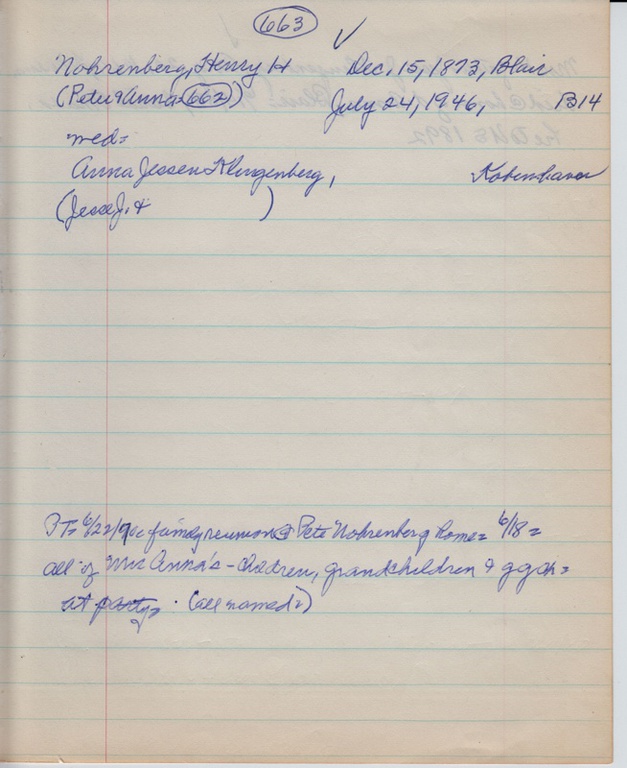 663 ✓
Nohrenberg, Henry H Dec, 15, 1873, Blair
(Peter & Anna 662) July 24, 1946, B14
med=
Anna Jessen Klingenberg,
(Jesse J. & )
PT= 6/22/ family reunion @ Pete Nohrenberg home= 6/18=
all of Mrs Anna's - children, grandchildren & g g ch=
at party= (all named)